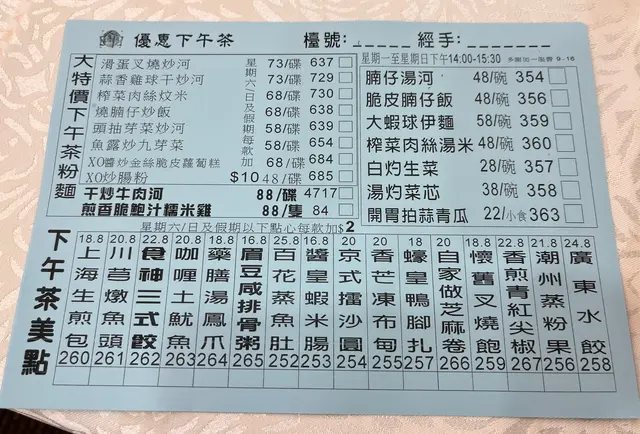 優惠下午茶 檯號:______ 經手:______
大特價下午茶粉麵
滑蛋叉燒炒河 73/碟 637
蒜香雞球干炒河 73/碟 729
榨菜肉絲炆米 68/碟 730
燒腩仔炒飯 68/碟 638
頭抽芽菜炒河 58/碟 639
魚露炒九芽菜 58/碟 654
XO醬炒金絲脆皮蘿蔔糕 68/碟 684
XO炒腸粉 48/碟 685
星期六日及假期每款加$10
干炒牛肉河 88/碟 4717
煎香脆鮑汁糯米雞 88/隻 84
星期一至星期日下午14:00-15:30 多謝加一服務 9-16
腩仔湯河 48/碗 354
脆皮腩仔飯 48/碗 356
大蝦球伊麵 58/碗 359
榨菜肉絲湯米 48/碗 360
白灼生菜 28/碗 357
湯灼菜芯 38/碗 358
開胃拍蒜青瓜 22/小食 363
星期六/日及假期以下點心每款加$2
下午茶美點
18.8 上海生煎包 260
20.8 川芎燉魚頭 261
22.8 食神三式餃 262
20.8 咖喱土魷魚 263
18.8 藥膳湯鳳爪 264
16.8 眉豆咸排骨粥 265
25.8 百花蒸魚肚 252
16.8 醬皇蝦米腸 253
20 京式擂沙圓 254
20 香芒凍布甸 255
18 蠔皇鴨腳扎 257
20 自家做芝麻卷 266
18.8 懷舊叉燒飽 259
22.8 香煎青紅尖椒 267
21.8 潮州蒸粉果 256
24.8 廣東水餃 258